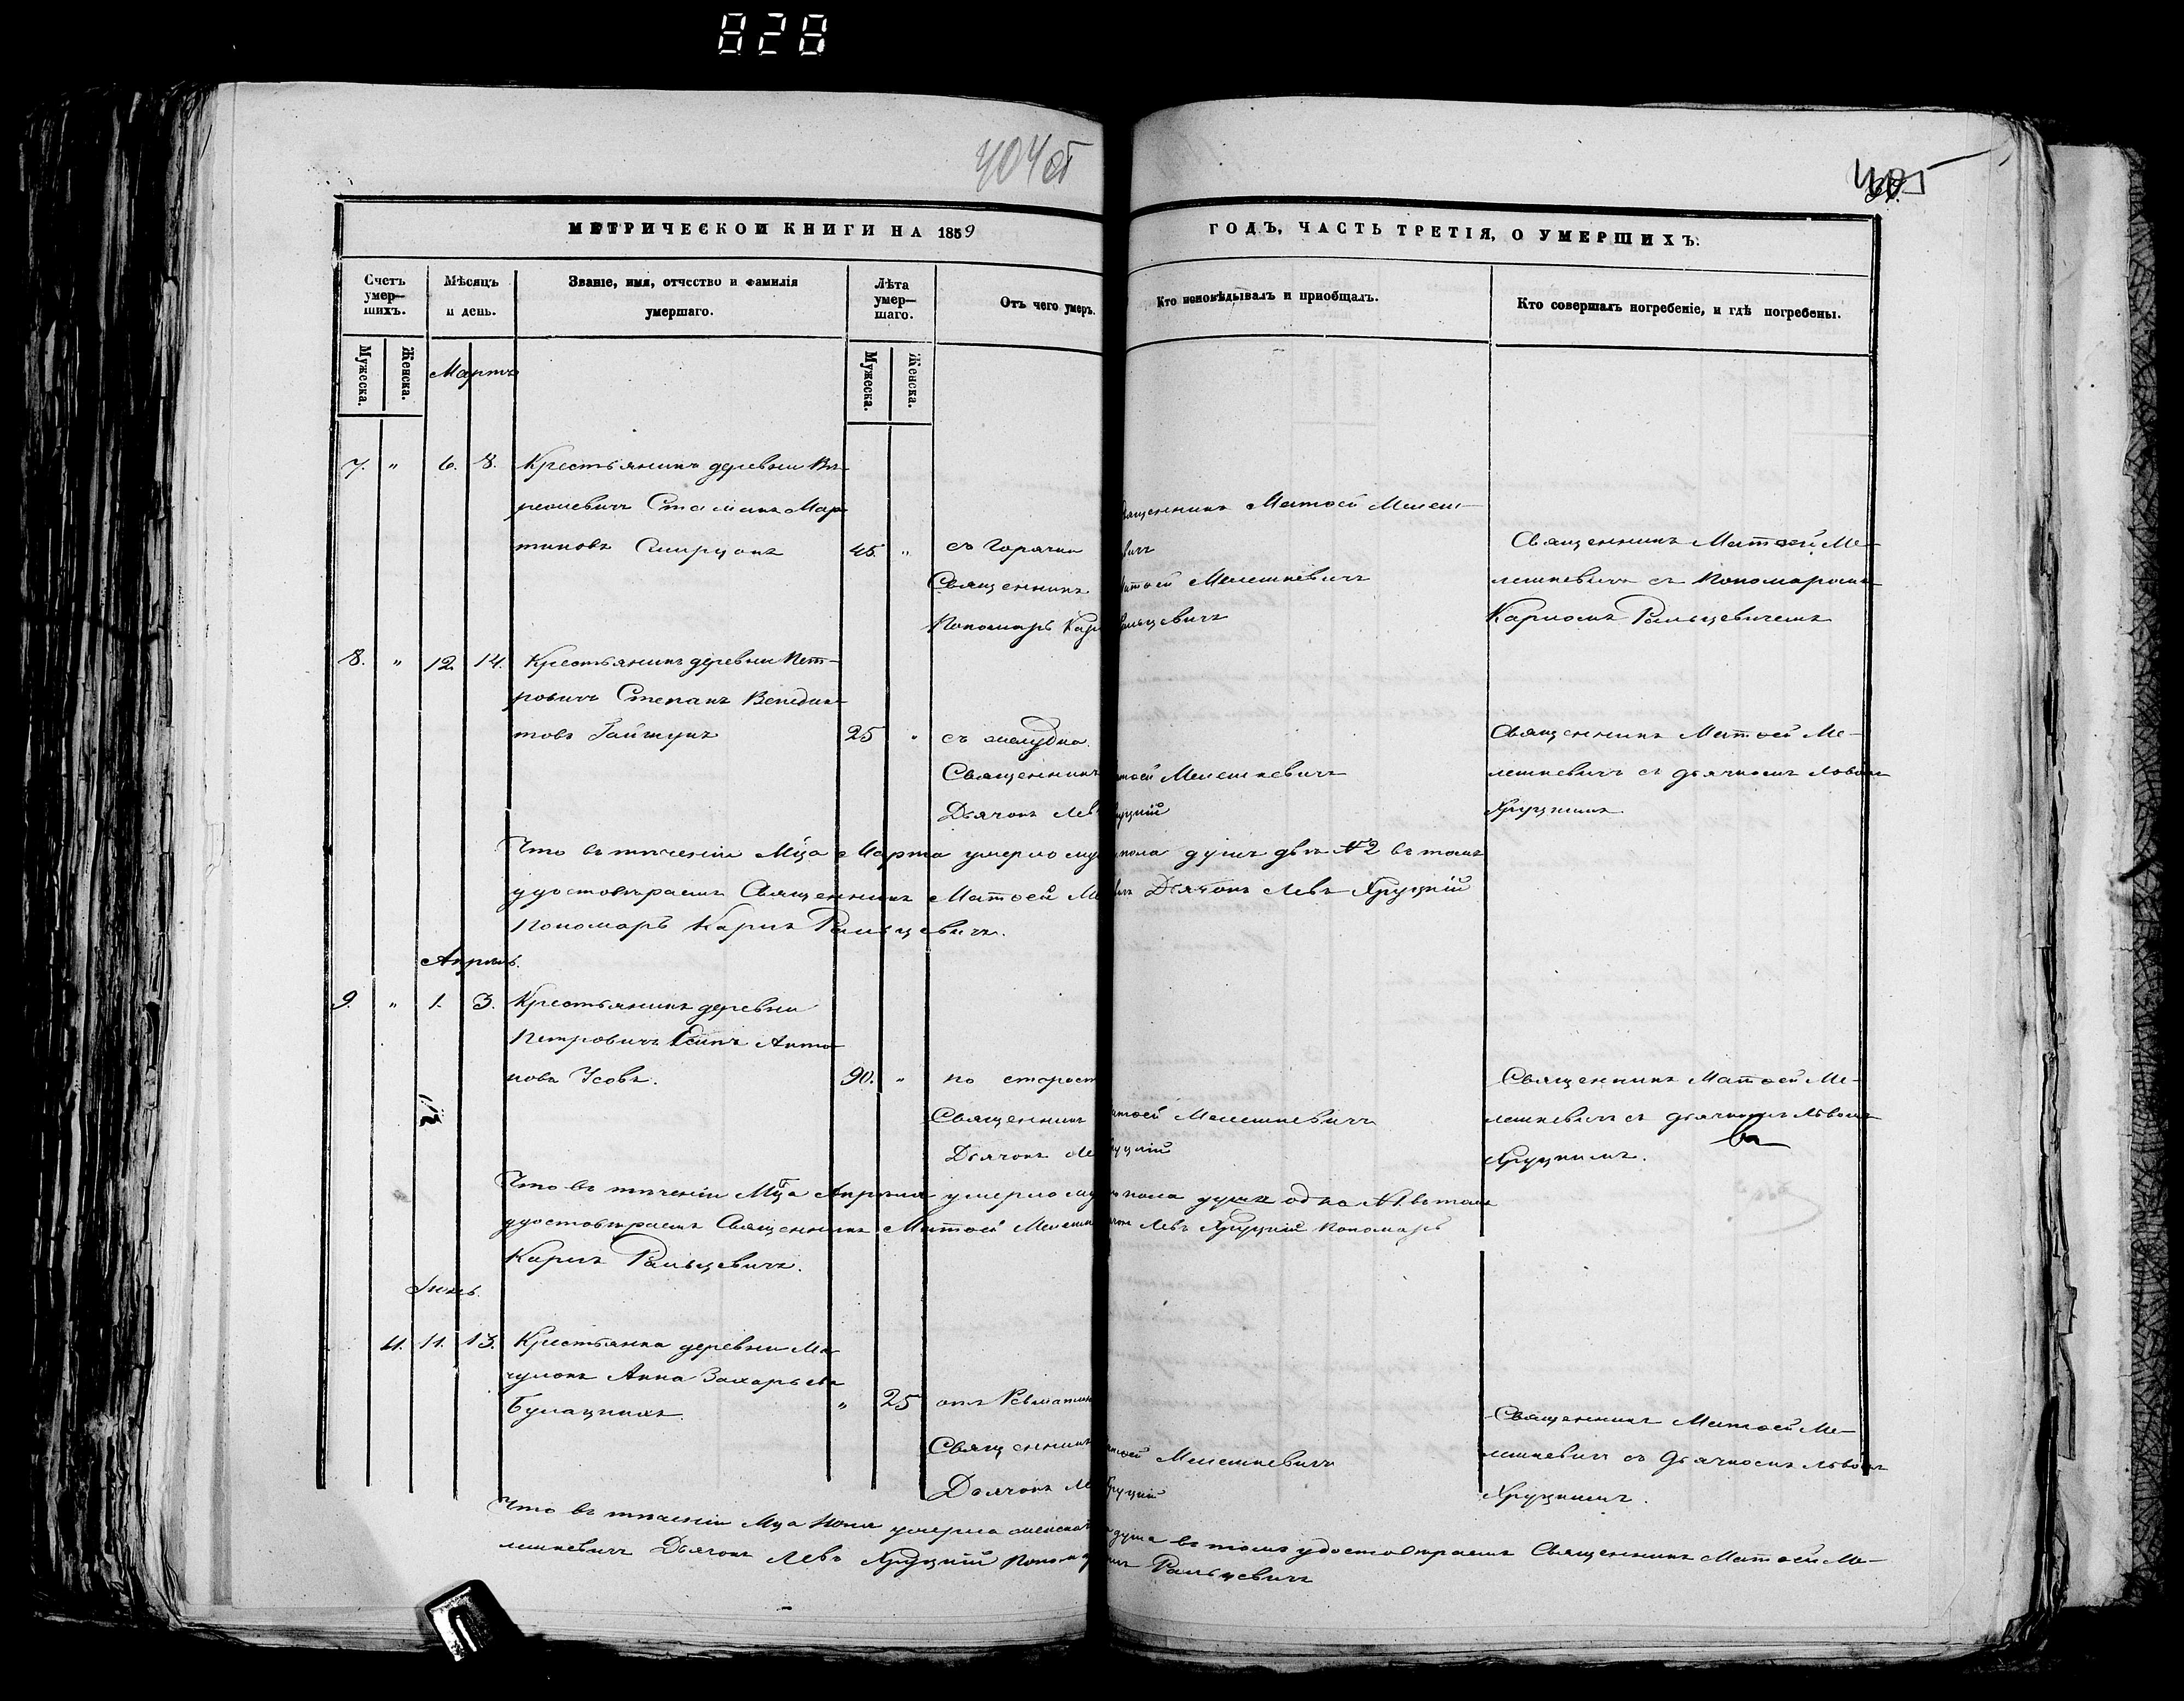 828
404 об
405
МЕТРИЧЕСКОЙ КНИГИ НА 1859
ГОДЪ, ЧАСТЬ ТРЕТІЯ, О УМЕРШИХЪ.
Счетъ умер—шихъ.
Мѣсяцъ и день.
Званіе, имя, отчество и фамилія умершаго.
Лѣта умер—шаго.
Отъ чего умеръ.
Кто исповѣдывалъ и пріобщалъ.
Кто совершалъ погребеніе, и гдѣ погребены.
Мужеска.
Женска.
Мужеска.
Женска.
Мартъ
7. " 6. 8. Крестьянинъ деревни
Мар-
тиновъ 45. " съ горячки
Священникъ Матѳей Мелеш-
вичъ
Священникъ Матѳей Мелешкевичъ
Пономарь Кар Ральцевичъ
Священникъ Матѳей Ме-
лешкевичъ съ Пономаремъ
Карпомъ Ральцевичемъ
8. " 12. 14. Крестьянинъ деревни Пет-
ровичъ Степанъ Венедик-
товъ Гайшунъ 25 " съ желудка.
Священникъ Матѳей Мелешкевичъ
Дьячокъ Левъ Хруцкій
Священникъ Матѳей Ме-
лешкевичъ съ дьячкомъ Львомъ
Хруцкимъ
Что въ теченіи Мца Марта умерло муж пола душъ двѣ №2 въ томъ
удостовѣряемъ Священникъ Матѳей Ме вичъ Дьячокъ Левъ Хруцкій
Пономарь Карпъ Ральцевичъ.
Апрѣль.
9. " 1. 3. Крестьянинъ деревни
Петровичъ Осипъ Анто-
новъ Усовъ. 90. " по старост
Священникъ Матѳей Мелешкевичъ
Дьячокъ Левъ Хруцкій
Священникъ Матѳей Ме-
лешкевичъ съ дьячкомъ Львомъ
Хруцкимъ.
Что въ теченіи Мца Апрѣля умерло муж пола душа одна №1. въ томъ
удостовѣряемъ Священникъ Матѳей Мелешк Левъ Хруцкій Пономарь
Карпъ Ральцевичъ.
Іюнь.
4. 11. 13. Крестьянка деревни Ма-
чулокъ Анна Захарьева
" 25 отъ Ревматизм
Священникъ Матѳей Мелешкевичъ
Дьячокъ Левъ Хруцкій
Священникъ Матѳей Ме-
лешкевичъ съ Дьячкомъ Львомъ
Хруцкимъ.
Что въ теченіи Мца Іюня умерла женска душа въ томъ удостовѣряемъ Священникъ Матѳей Ме-
лешкевичъ Дьячокъ Левъ Хруцкій Пономарь Карпъ Ральцевичъ